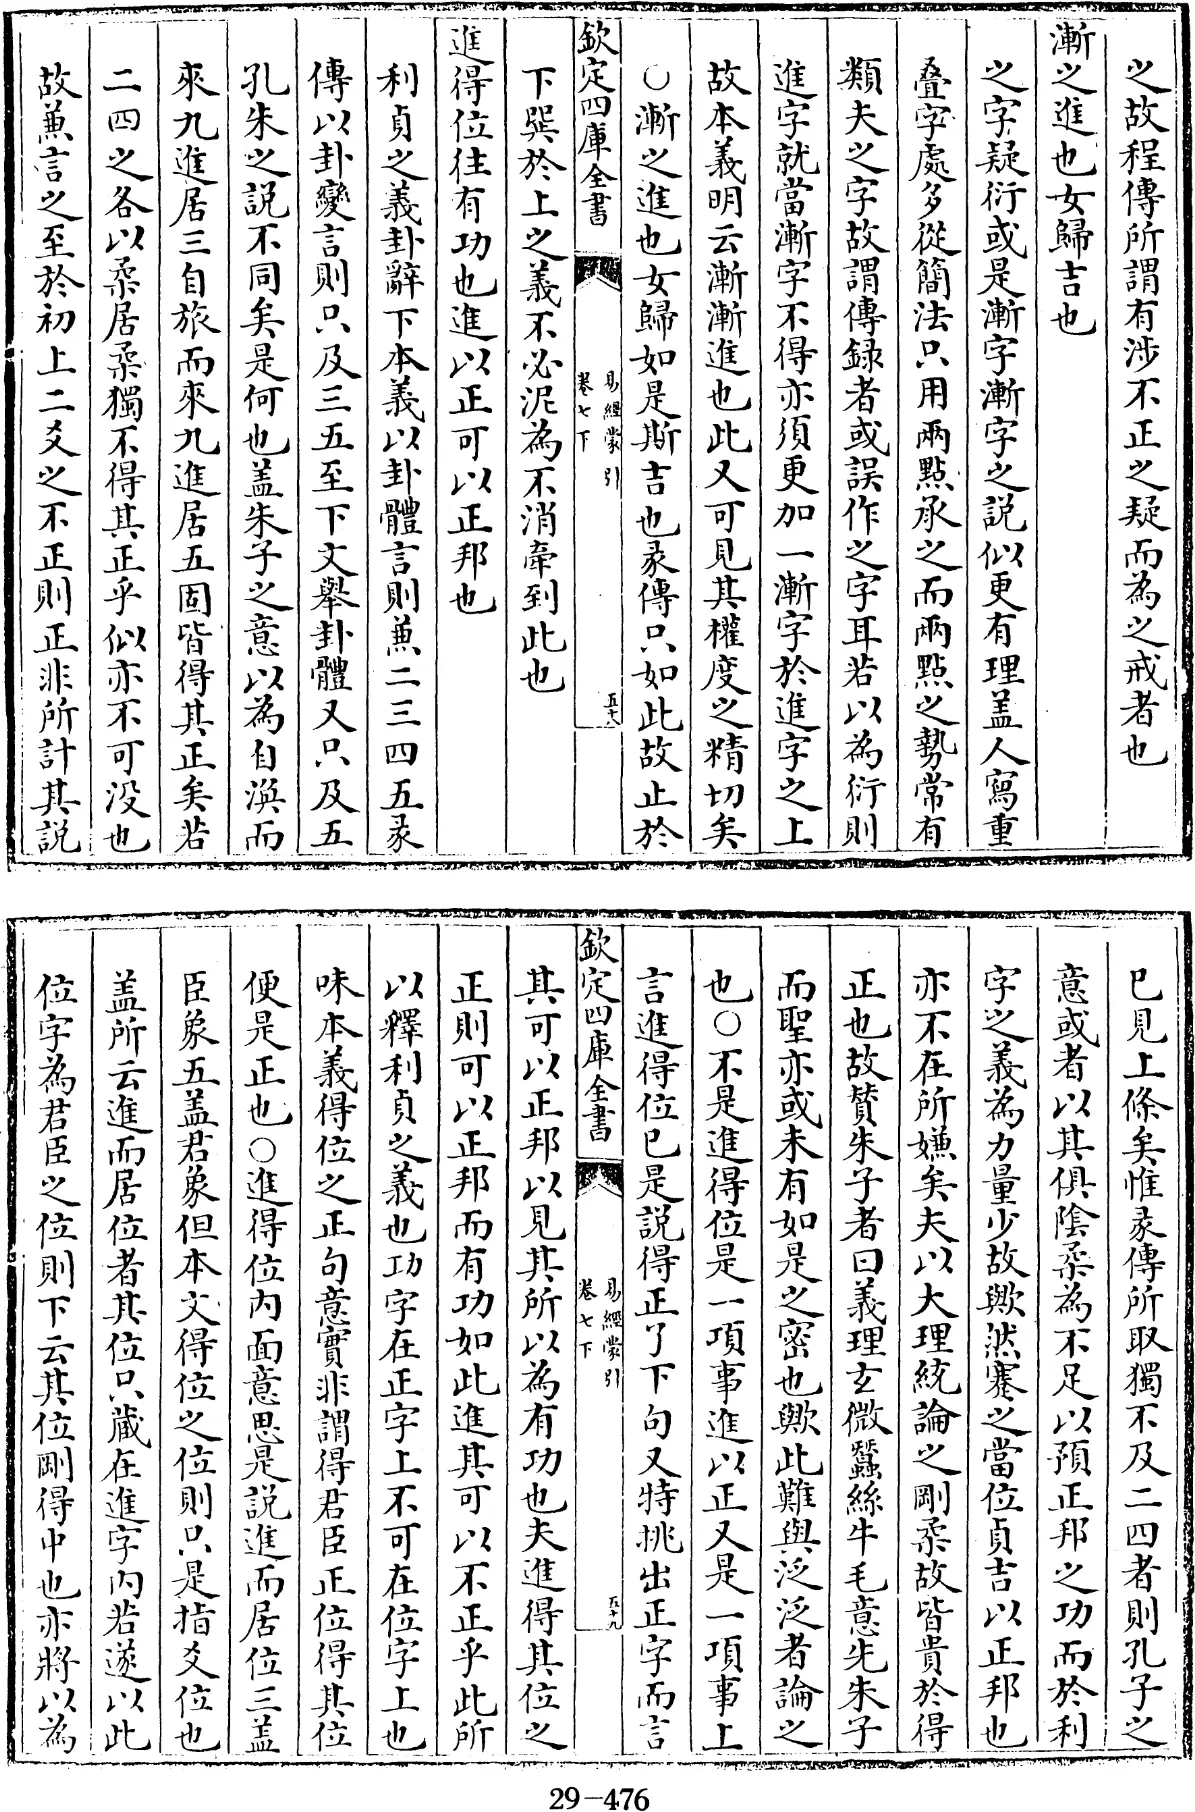 之故程傳所謂有涉不正之疑而為之戒者也
漸之進也女歸吉也
之字疑衍或是漸字漸字之說似更有理盖人寫重
叠字處多從簡法只用兩點承之而兩點之勢常有
類夫之字故謂傳録者或誤作之字耳若以為衍則
進字就當漸字不得亦須更加一漸字於進字之上
故本義明云漸漸進也此又可見其權度之精切矣
○漸之進也女歸如是斯吉也彖傳只如此故止於
欽定四庫全書
易經蒙引
卷七下
五十八
下巽於上之義不必泥為不消牽到此也
進得位往有功也進以正可以正邦也
利貞之義卦辭下本義以卦體言則兼二三四五彖
傳以卦變言則只及三五至下文舉卦體又只及五
孔朱之說不同矣是何也盖朱子之意以為自渙而
來九進居三自旅而來九進居五固皆得其正矣若
二四之各以柔居柔獨不得其正乎似亦不可没也
故兼言之至於初上二爻之不正則正非所計其說
已見上條矣惟彖傳所取獨不及二四者則孔子之
意或者以其俱陰柔為不足以預正邦之功而於利
字之義為力量少故歟然蹇之當位貞吉以正邦也
亦不在所嫌矣夫以大理統論之剛柔故皆貴於得
正也故贊朱子者曰義理玄微蠶絲牛毛意先朱子
而聖亦或未有如是之密也歟此難與泛泛者論之
也○不是進得位是一項事進以正又是一項事上
言進得位已是説得正了下句又特挑出正字而言
欽定四庫全書
易經蒙引
卷七下
五十九
其可以正邦以見其所以為有功也夫進得其位之
正則可以正邦而有功如此進其可以不正乎此所
以釋利貞之義也功字在正字上不可在位字上也
味本義得位之正句意實非謂得君臣正位得其位
便是正也○進得位内面意思是説進而居位三盖
臣象五盖君象但本文得位之位則只是指爻位也
盖所云進而居位者其位只藏在進字内若遂以此
位字為君臣之位則下云其位剛得中也亦將以為
29-476